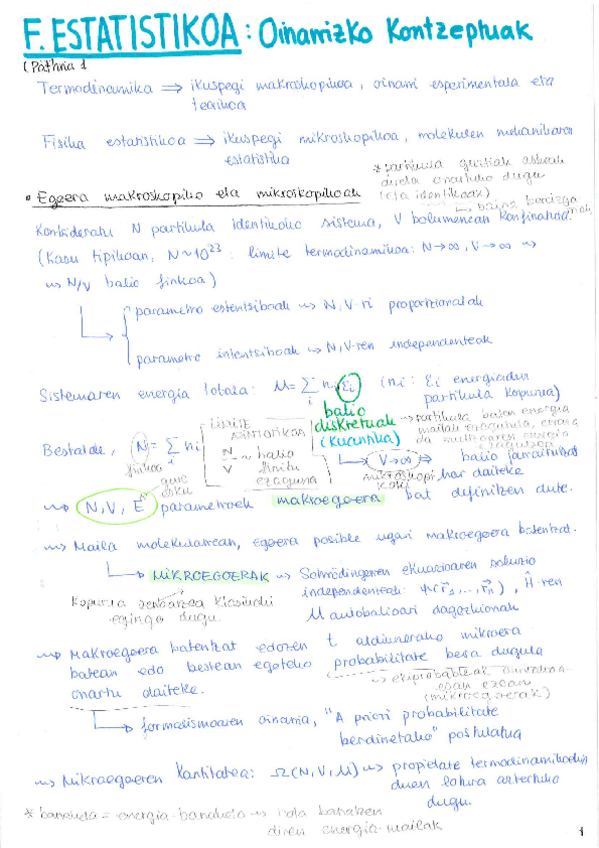 F. ESTATISTIKOA: Oinarrizko Kontzeptuak
(Pathria 1
Termodinamika ⇒ ikuspegi makroskopikoa, oinarri esperimentala eta
teorikoa
Fisika estatistikoa ⇒ ikuspegi mikroskopikoa, molekulen mekanikaren
estatistika
* partikula guztiak askeak
direla onartuko dugu
(eta identikoak)
↳ baina bereizga
• Egoera makroskopiko eta mikroskopikoak
Kontsideratu N partikula identikoko sistema, V bolumenean konfinatuta.
(Kasu tipikoan, N~10²³: limite termodinamikoa: N→∞, V→∞ ⇝
⇝ N/V balio finkoa)
parametro estentsiboak ⇝ N, V-ri proportzionalak
parametro intentsiboak ⇝ N, V-ren independenteak
Sistemaren energia totala: U = Σᵢ nᵢ εᵢ (nᵢ: εᵢ energiadun
partikula kopurua)
balio
diskretuak
(kuantika)
→ partikula baten energia
mailak ezagututa,
Bestalde, N = Σᵢ nᵢ
finkoa
LIMITE
ASINTOTIKOAN
N/V ~ balio
finitu
ezaguna
↳ V→∞ ⇒ balio jarraitutzat
mikroskopi
koki
har daiteke
⇝ N, V, E parametroek makroegoera bat definitzen dute.
gure
esku
⇝ Maila molekularrean, egoera posible ugari makroegoera batentzat.
↳ MIKROEGOERAK ⇝ Schrödingeren ekuazioaren soluzio
independenteak: ψ(r⃗₁,...,r⃗ₙ), Ĥ-ren
U autobalioari dagozkionak
Kopurua zenbatzea klasikoki
egingo dugu.
⇝ Makroegoera batentzat edozein t aldiunerako mikroera
batean edo bestean egoteko probabilitate bera dugula
onartu daiteke.
↳ ekiprobableak
esan ezean
(mikroegoerak)
↳ formalismoaren oinarria, "A priori probabilitate
berdinetako" postulatua
⇝ Mikroegoeren kantitatea: Ω(N, V, U) ⇝ propietate termodinamikoekin
duen lotura aztertuko
dugu.
* banaketa = energia-banaketa ⇝ nola banatzen
diren energia-mailak
1